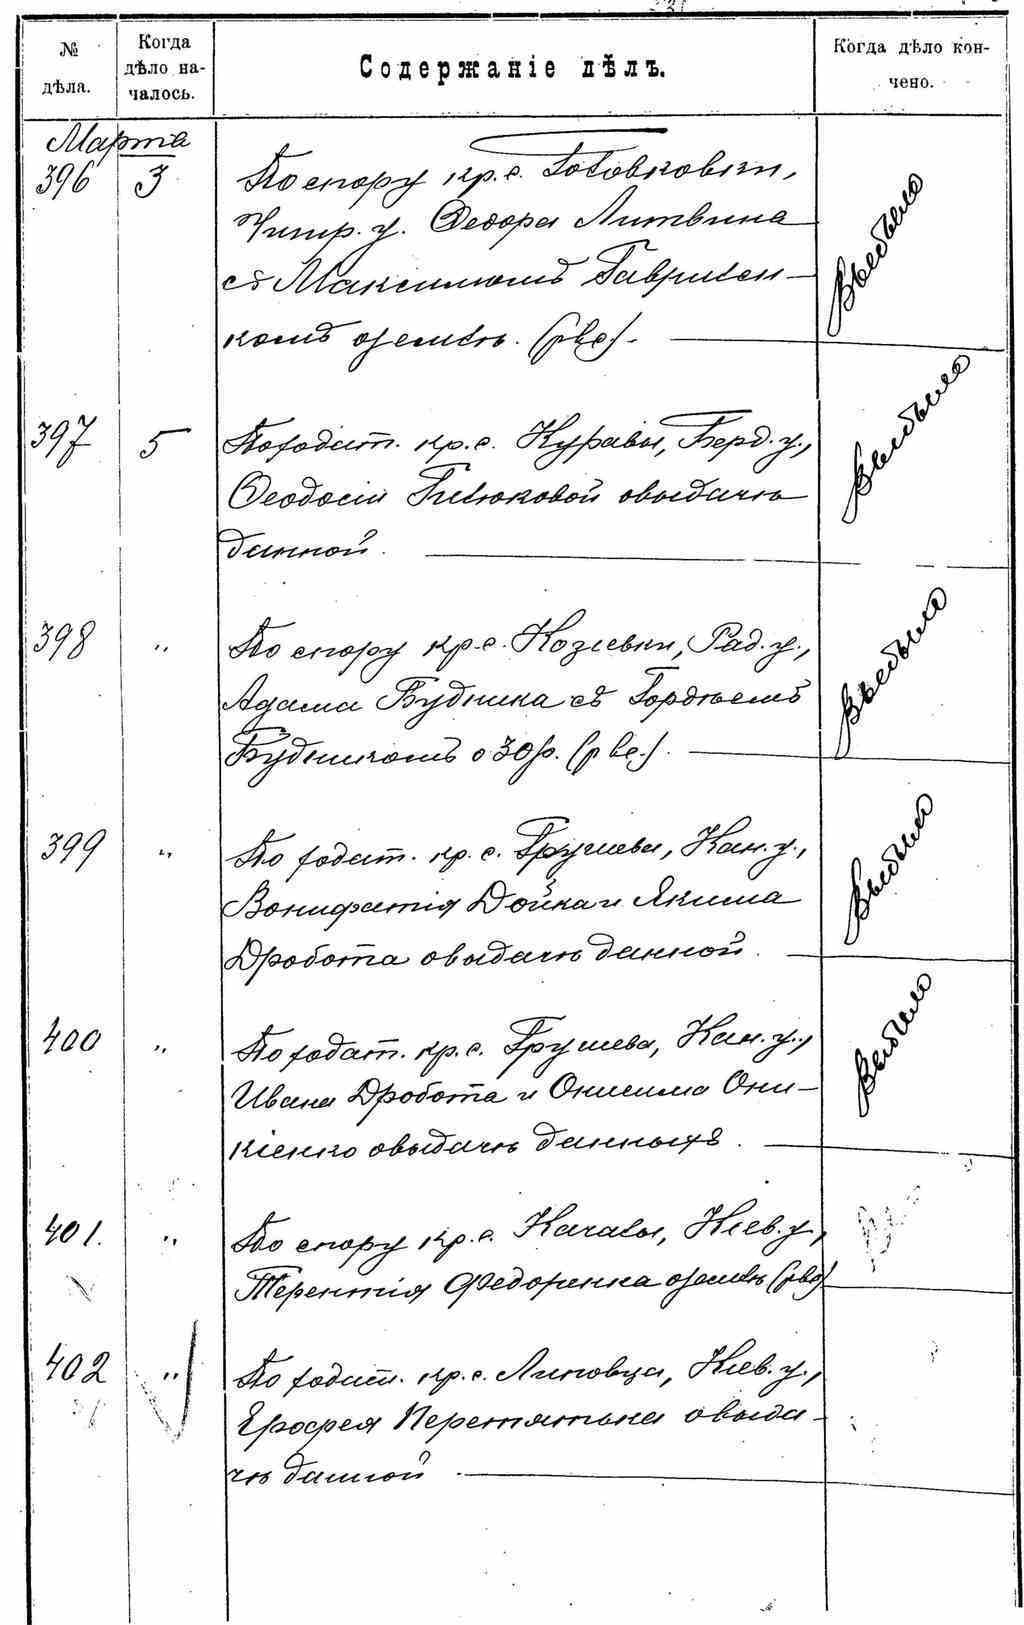 № дѣла.
Когда дѣло на-
чалось.
Содержаніе дѣлъ.
Когда дѣло кон-
чено.
Марта
396 3 По спору кр. с.
у. Ѳедора Литвина
съ Максимомъ Гаврилен-
комъ о землѣ. (рве). Выбыло
397 5 По ходат. кр. с. Журавы, Берд. у.,
Ѳеодосіи о выдачѣ
данной. Выбыло
398 " По спору кр. с. Козіевки, Рад. у.,
Адама Будника съ Гордѣемъ
Будникомъ о 30 р. (рве.). Выбыло
399 " По ходат. кр. с. Грушева, Кан. у.,
Вонифатія Дойка и Якима
Дробота о выдачѣ данной. Выбыло
400 " По ходат. кр. с. Грушева, Кан. у.,
Ивана Дробота и Онисима Они-
кіенко о выдачѣ данныхъ. Выбыло
401. " По спору кр. с. Качалы, Кіев. у.,
Терентія Федоренка о землѣ (рве)
402 " По ходат. кр. с. Липовца, Кіев. у.,
Ерофея Перетятька о выда-
чѣ данной